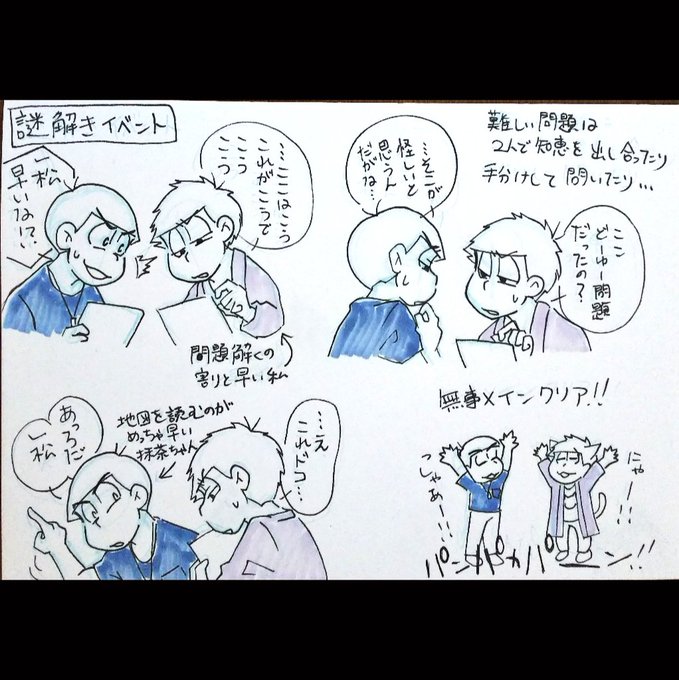 謎解きイベント
一松
早いなぁ!?
…ここはこう
これがこうで
こう
こう
問題解くの
割りと早い私
難しい問題は
2人で知恵を出し合ったり
手分けして問いたり…
…そこが
怪しいと
思うん
だがな…
ここ
どーゆー問題
だったの?
あっちだ
一松
地図を読むのが
めっちゃ早い
抹茶ちゃん
…え
これドコ…
無事メインクリア!!
っしゃあー!!
にゃー!!
パンパカパーン!!